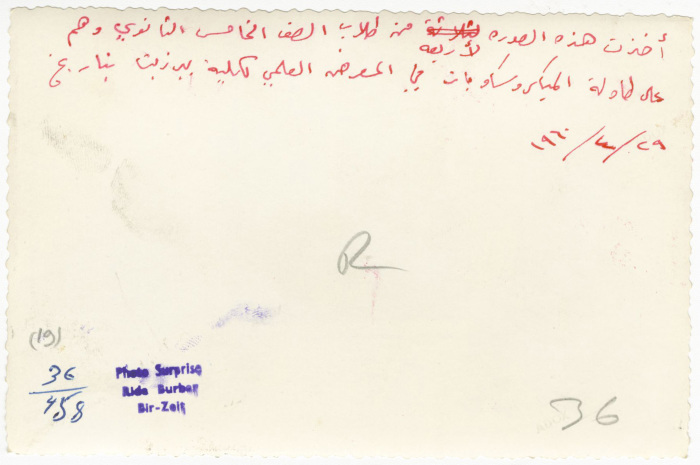 أخذت هذه الصوره لأربعة من طلاب الصف الخامس الثانوي وهم
على طاولة الميكروسكوبات في المعرض العلمي لكلية بيرزيت بتاريخ
٢٩/ ٣/ ١٩٦٠
R
(19)
36
458
Photo Surprise
Rida Burbar
Bir-Zeit
36